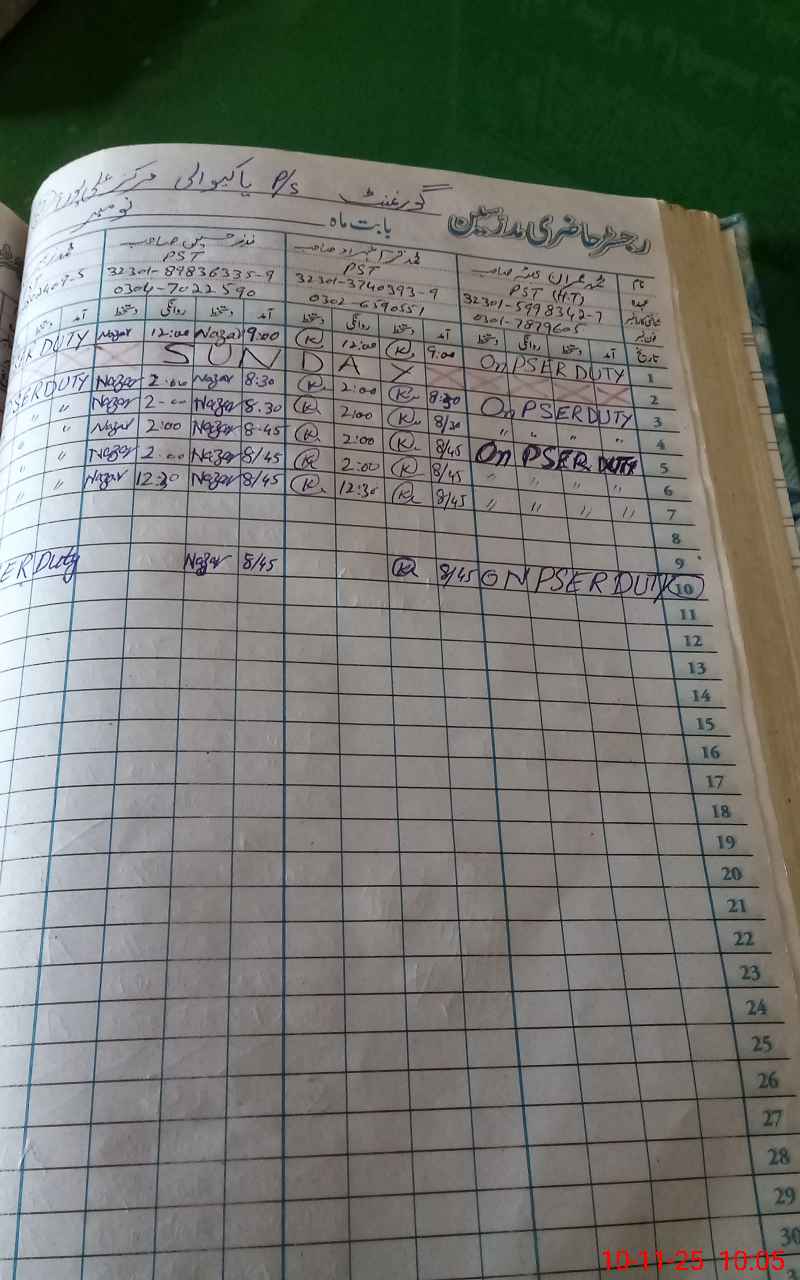 گورنمنٹ P/S پاکیوالی مرکز علی پور
رجسٹر حاضری مدرسین
بابت ماہ نومبر
نام
عہدہ
PST (H.T)
32301-5998342-7
0301-7879605
PST
32301-3740393-9
0302-6590551
PST
32301-89836335-9
0304-7022590
تاریخ آمد دستخط روانگی دستخط آمد دستخط روانگی دستخط آمد دستخط روانگی دستخط آمد دستخط
1 On PSER DUTY 9:00 K 12:00 K 9:00 Nazar 12:00 Nazar SER DUTY
2 SUNDAY
3 On PSER DUTY 8:30 K 2:00 K 8:30 Nazar 2:00 Nazar SER DUTY
4 " " " " 8/30 K 2:00 K 8:30 Nazar 2:00 Nazar " "
5 On PSER DUTY 8/45 K 2:00 K 8:45 Nazar 2:00 Nazar " "
6 " " " " 8/45 K 2:00 K 8/45 Nazar 2:00 Nazar " "
7 " " " " 8/45 K 12:30 K 8/45 Nazar 12:30 Nazar " "
8
9
10 ON PSER DUTY 8/45 K 8/45 Nazar ER Duty
11
12
13
14
15
16
17
18
19
20
21
22
23
24
25
26
27
28
29
30
10-11-25 10:05